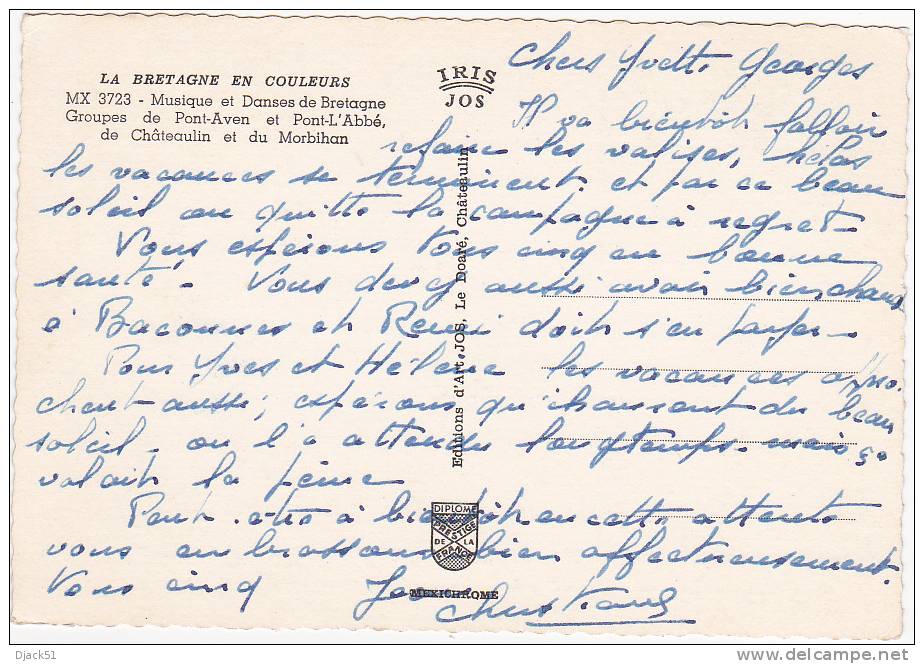 LA BRETAGNE EN COULEURS
MX 3723 - Musique et Danses de Bretagne
Groupes de Pont-Aven et Pont-L'Abbé,
de Châteaulin et du Morbihan
IRIS
JOS
Chers Yvette Georges
Il va bientôt falloir
refaire les valises, hélas
les vacances se terminent, et par ce beau
soleil on quitte la campagne à regret
Vous espérons tous cinq en bonne
santé. Vous devez aussi avoir bien chaud
à Baconnes et Rémi doit s'en
Pour Yves et Hélène les vacances appro.
chent aussi, espérons qu'ils auront du beau
soleil. on l'a attendu longtemps mais ça
valait la peine
Peut-être à bientôt en cette attente
vous embrassons bien affectueusement.
Vous cinq
Christiane
Editions d'Art JOS, Le Doaré, Châteaulin
DIPLOME
PRESTIGE
DE LA
FRANCE
MEXICHROME
Djack51
delcampe.net